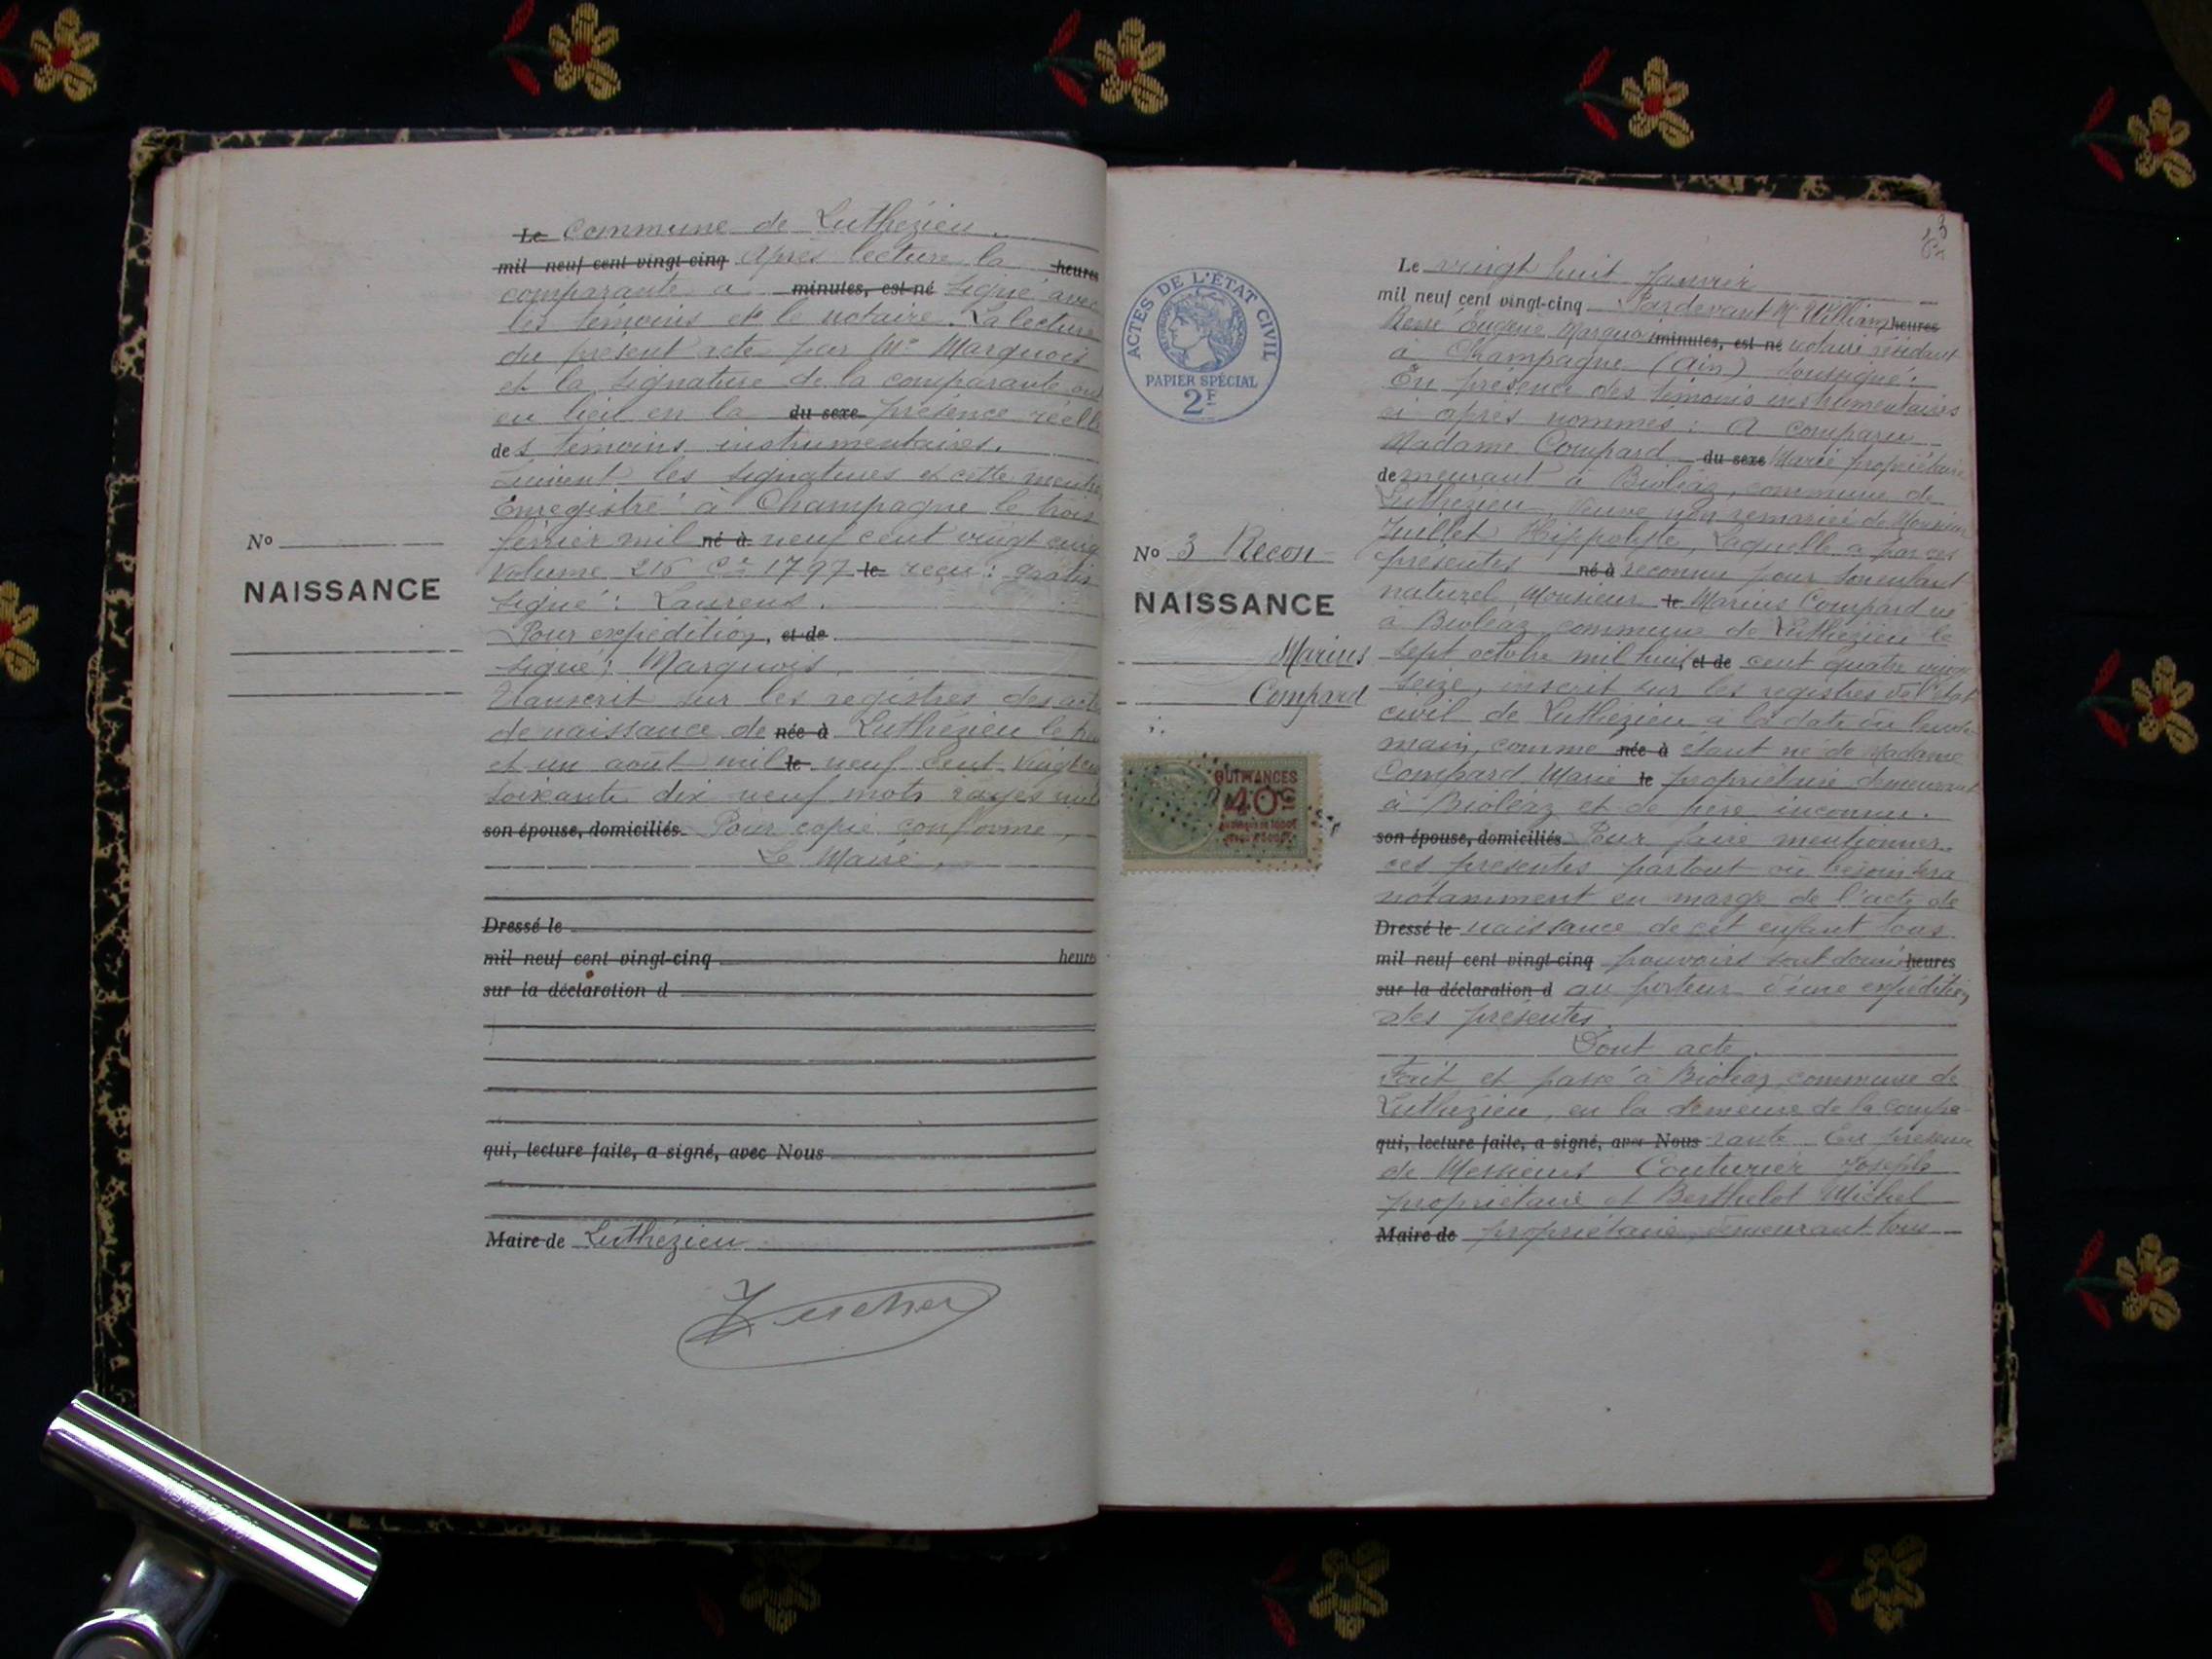 Le commune de Luthézieu.
mil neuf cent vingt-cinq Après lecture la heures
comparante a minutes, est né signé avec
les témoins et le notaire. La lecture
du présent acte par Me Marquois
et la signature de la comparante ont
eu lieu en la du sexe présence réelle
des témoins instrumentaires.
Suivent les signatures et cette mention
Enregistré à Champagne le trois
février mil né à neuf cent vingt cinq
volume 216 Ce 1797 le reçu : gratis
signé : Laurens.
Pour expédition, et de
signé : Marquois
Transcrit sur les registres des actes
de naissance de née à Luthézieu le
et un août mil le neuf cent vingt cinq
soixante dix neuf mots rayés nuls
son épouse, domiciliés Pour copie conforme,
Le Maire,
Dressé le
mil neuf cent vingt-cinq heures
sur la déclaration d
qui, lecture faite, a signé, avec Nous
Maire de Luthézieu
No
NAISSANCE
3
ACTES DE L'ÉTAT CIVIL
PAPIER SPÉCIAL
2F
No 3 Recon
NAISSANCE
Marius
Compard
QUITTANCES
40c
Le vingt huit Janvier
mil neuf cent vingt-cinq Pardevant Me William heures
René Eugène Marquois minutes, est né notaire résidant
à Champagne (Ain) soussigné :
En présence des témoins instrumentaires
ci après nommés : A comparu
Madame Compard du sexe Marie propriétaire
demeurant à Bioléaz, commune de
Luthézieu, Veuve non remariée de Monsieur
Juillet Hippolyte, Laquelle a par ces
présentes né à reconnu pour son enfant
naturel Monsieur le Marius Compard né
à Bioléaz commune de Luthézieu le
sept octobre mil huit et de cent quatre vingt
seize, inscrit sur les registres de l'état
civil de Luthézieu à la date du lende-
main, comme née à étant né de Madame
Compard Marie le propriétaire demeurant
à Bioléaz et de père inconnu.
son épouse, domiciliés Pour faire mentionner
ces présentes partout où besoin sera
notamment en marge de l'acte de
Dressé le naissance de cet enfant tous
mil neuf cent vingt-cinq pouvoirs sont donnés heures
sur la déclaration d au porteur d'une expédition
des présentes.
Dont acte.
Fait et passé à Bioléaz commune de
Luthézieu, en la demeure de la compa-
qui, lecture faite, a signé, avec Nous rante En présence
de Messieurs Couturier Joseph
propriétaire et Berthelot Michel
Maire de propriétaire, demeurant tous